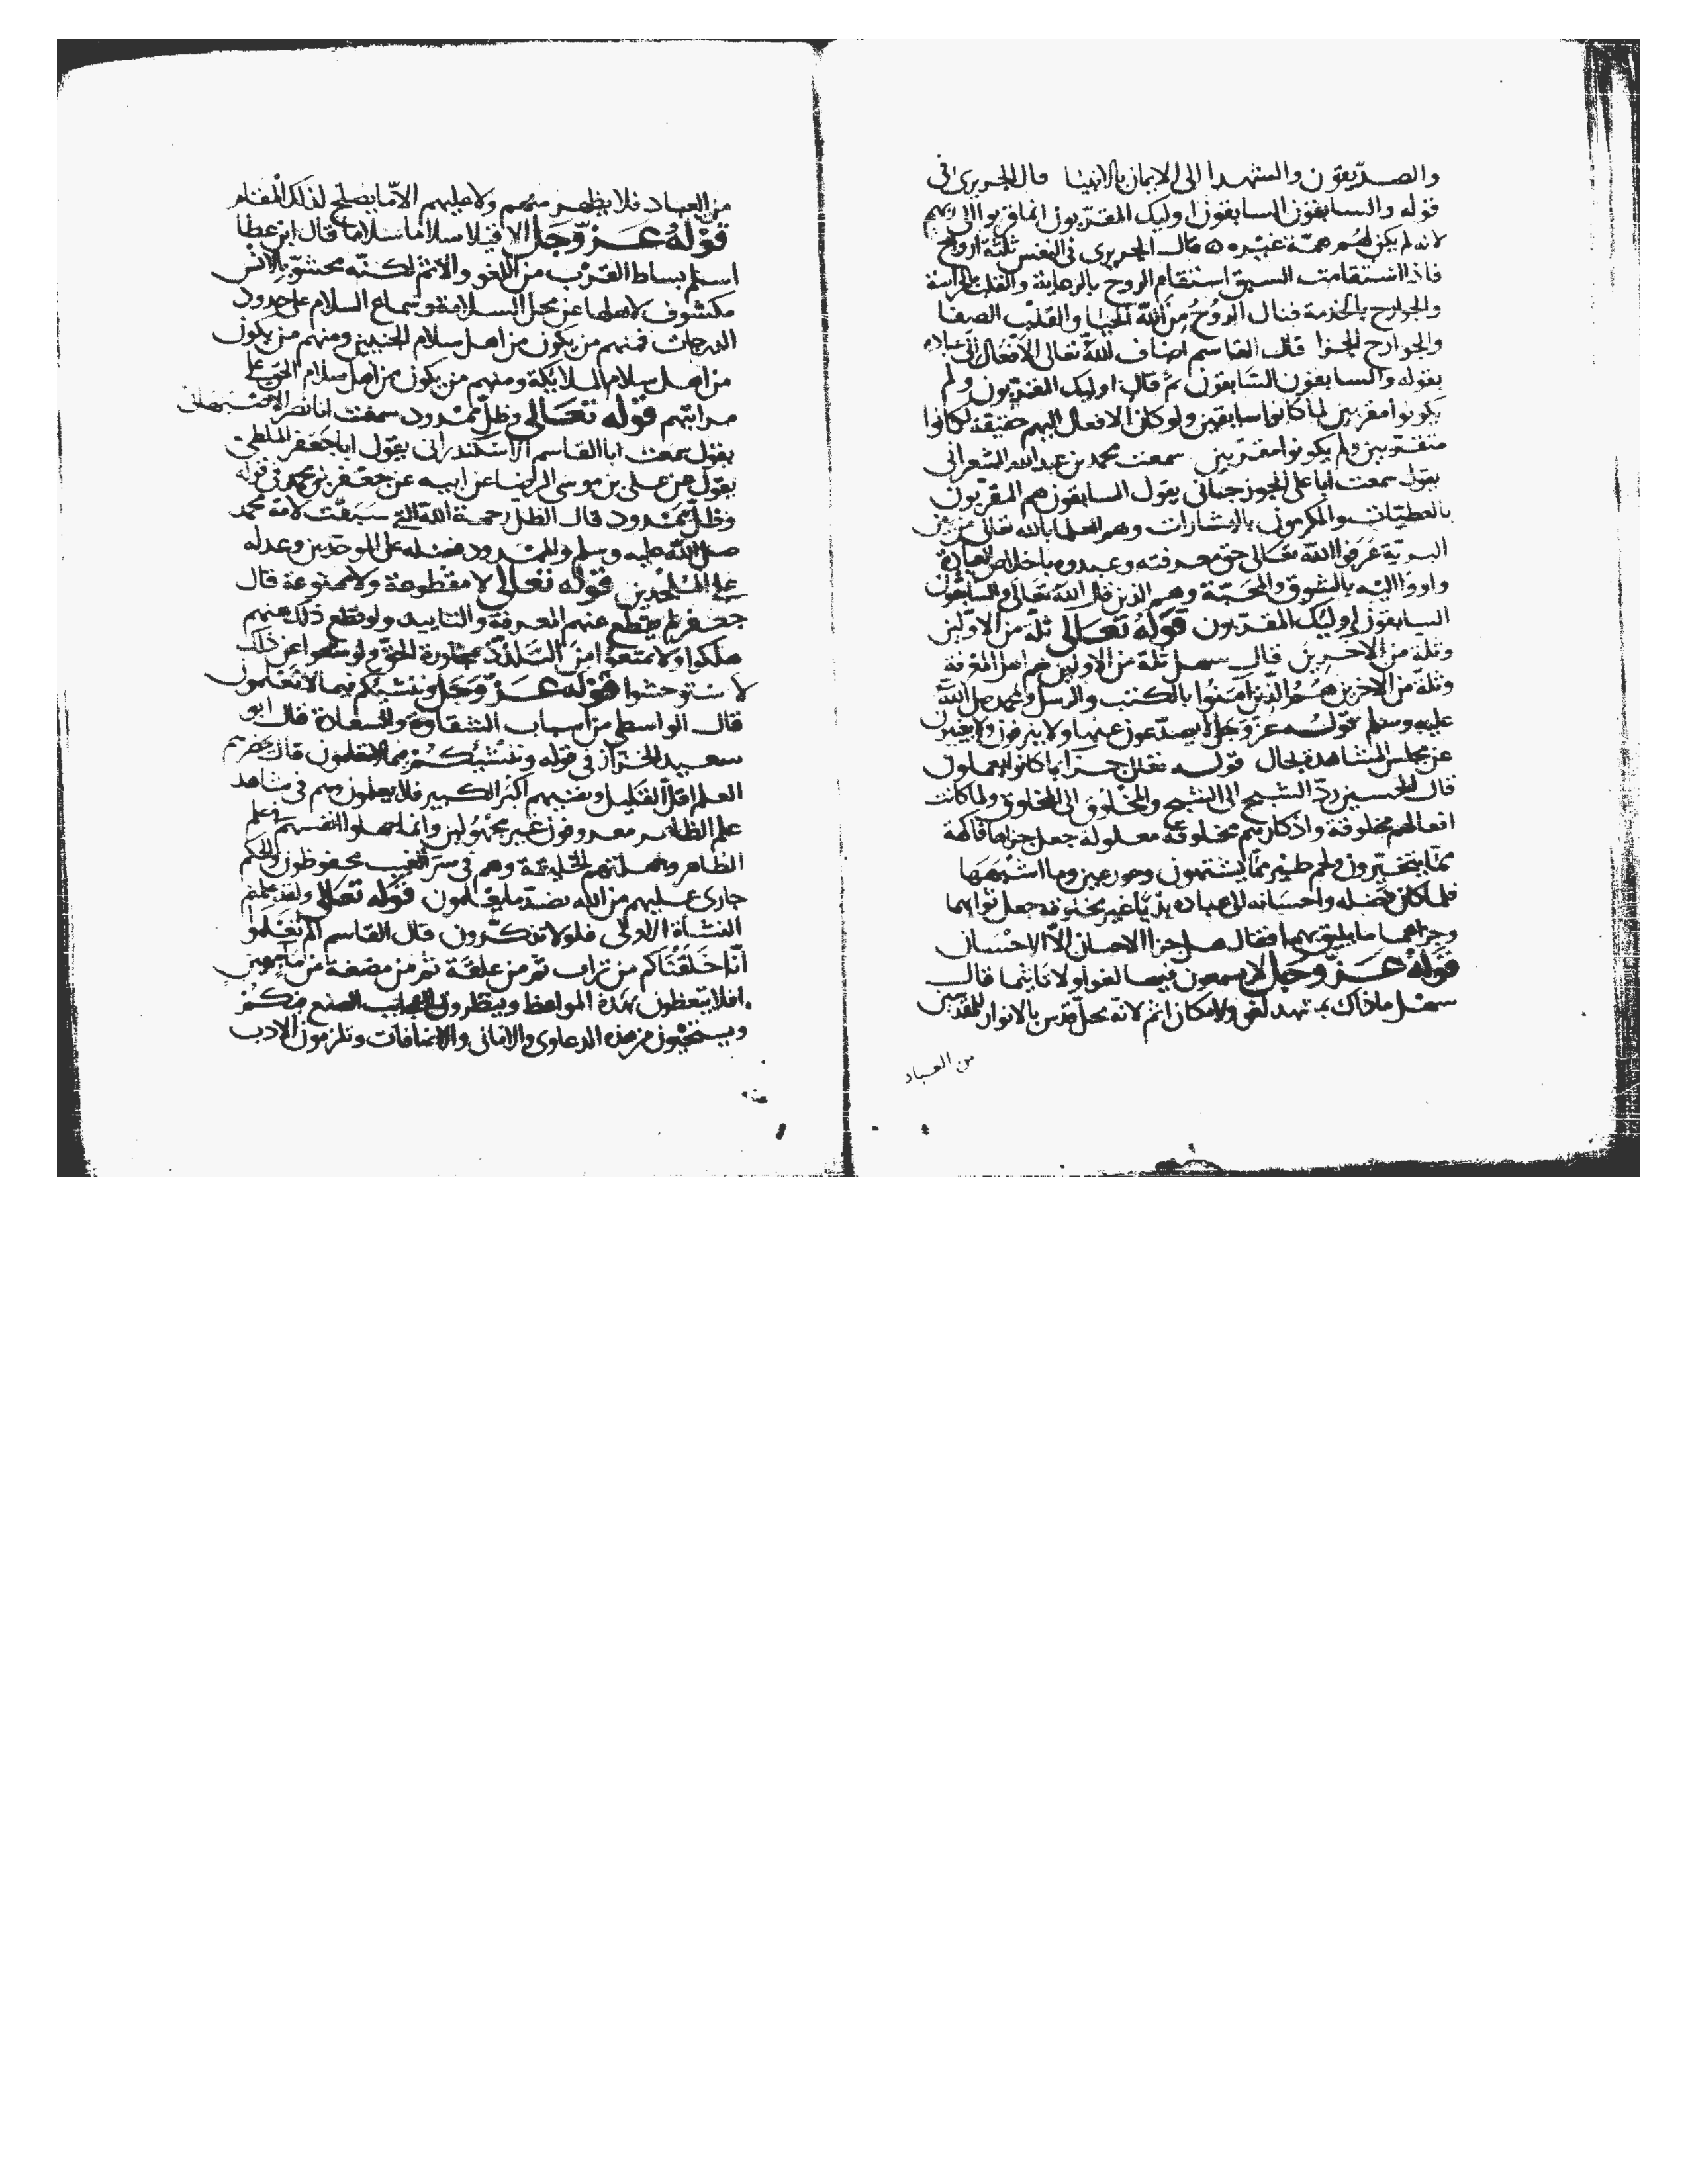 والصديقون والشهدا الى الايمان بالانبيا قال الجريري في
قوله والسابقون السابقون اوليك المقربون انما قربوا الى ربهم
لانه لم يكن لهم همة غيره قال الجريري في النفس ثلثة ارواح
فاذا استقامت السبق استقام الروح بالرعاية والقلب بالحراسة
والجوارح بالخدمة فنال الروح من الله الحيا والقلب الصفا
والجوارح الجزا قال القاسم اضاف الله تعالى الافعال الى عباده
بقوله والسابقون السابقون ثم قال اوليك المقربون ولم
يكونوا مقربين لما كانوا سابقين ولو كان الافعال اليهم حقيقة لكانوا
متقربين ولم يكونوا مقربين سمعت محمد بن عبد الله الشعراني
يقول سمعت ابا علي الجوزجاني يقول السابقون هم المقربون
بالعطيات والمكرمون بالبشارات وهم العلما بالله تعالى من بين
البرية عرفوا الله تعالى حق معرفته وعبدوه باخلاص العبادة
واووا اليه بالشوق والمحبة وهم الذين قال الله تعالى والسابقون
السابقون اوليك المقربون قوله تعالى ثلة من الاولين
وثلة من الاخرين قال سهل ثلة من الاولين هم اهل المعرفة
وثلة من الاخرين هم الذين امنوا بالكتب والرسل وبمحمد صلى الله
عليه وسلم قوله عز وجل لا يصدعون عنها ولا ينزفون ولا يغيبون
عن مجلس المشاهدة بحال قوله تعالى جزا بما كانوا يعملون
قال الحسين رد الشبح الى الشبح والمخلوق الى المخلوق ولما كانت
افعالهم مخلوقة واذكارهم مخلوقة معلولة جعل جزاها فاكهة
مما يتخيرون ولحم طير مما يشتهون وحور عين وما اشبهها
فلما كان فضله واحسانه الى عباده بديا غير مخلوقه جعل ثوابهما
وجزاهما ما يليق بهما فقال هل جزا الاحسان الا الاحسان
قوله عز وجل لا يسمعون فيها لغوا ولا تاثيما قال
سهل ماذاك بمشهد لغو ولا مكان اثم لانه محل قدس بالانوار للمقدسين
من العباد
من العباد فلا يظهر منهم ولا عليهم الا ما يصلح لذلك المقام
قوله عز وجل الا قيلا سلاما سلاما قال ابن عطا
اسلم بساط القرب من اللغو والاثم لكنه محشو بالانس
مكشوف لاهلها عن محل السلامة وسماع السلام على حدود
الدرجات فمنهم من يكون من اهل سلام الجنيين ومنهم من يكون
من اهل سلام الملايكة ومنهم من يكون من اهل سلام الحق على
مراتبهم قوله تعالى وظل ممدود سمعت ابا نصر الاصبهاني
يقول سمعت ابا القاسم الاسكندراني يقول ابا جعفر الملطي
يقول عن علي بن موسى الرضا عن ابيه عن جعفر بن محمد في قوله
وظل ممدود قال الظل رحمة الله التي سبقت لامة محمد
صلى الله عليه وسلم والممدود فضله على الموحدين وعدله
على الملحدين قوله تعالى لا مقطوعة ولا ممنوعة قال
جعفر لم يقطع عنهم المعرفة والتاييد ولو قطع ذلك عنهم
هلكوا ولا منعوا من التلذذ بمجاورة الحق ولو منعوا عن ذلك
لاستوحشوا قوله عز وجل وننشيكم فيما لا تعلمون
قال الواسطي من اسباب الشقاوة والسعادة قال ابو
سعيد الخراز في قوله وننشيكم فيما لا تعلمون قال حضرهم
العلم اقل القليل وبغيبهم اكبر الكبير فلا يعلمون وهم في مشاهد
علم الظاهر معروفون غير مجهولين وانما جهلوا انفسهم في علم
الظاهر وجهلتهم الخليقة وهم في سر الغيب محفوظون والحكم
جارى عليهم من الله بضد ما يعلمون قوله تعالى ولقد علمتم
النشاة الاولى فلولا تذكرون قال القاسم الم تعلموا
انا خلقناكم من تراب ثم من علقة ثم من مضغة من ما مهين
افلا يتعظون بهذه المواعظ وينظرون الى عجايب الصنع منكم
ويستحيون من هذه الدعاوى والاماني والاضافات وتلزمون الادب